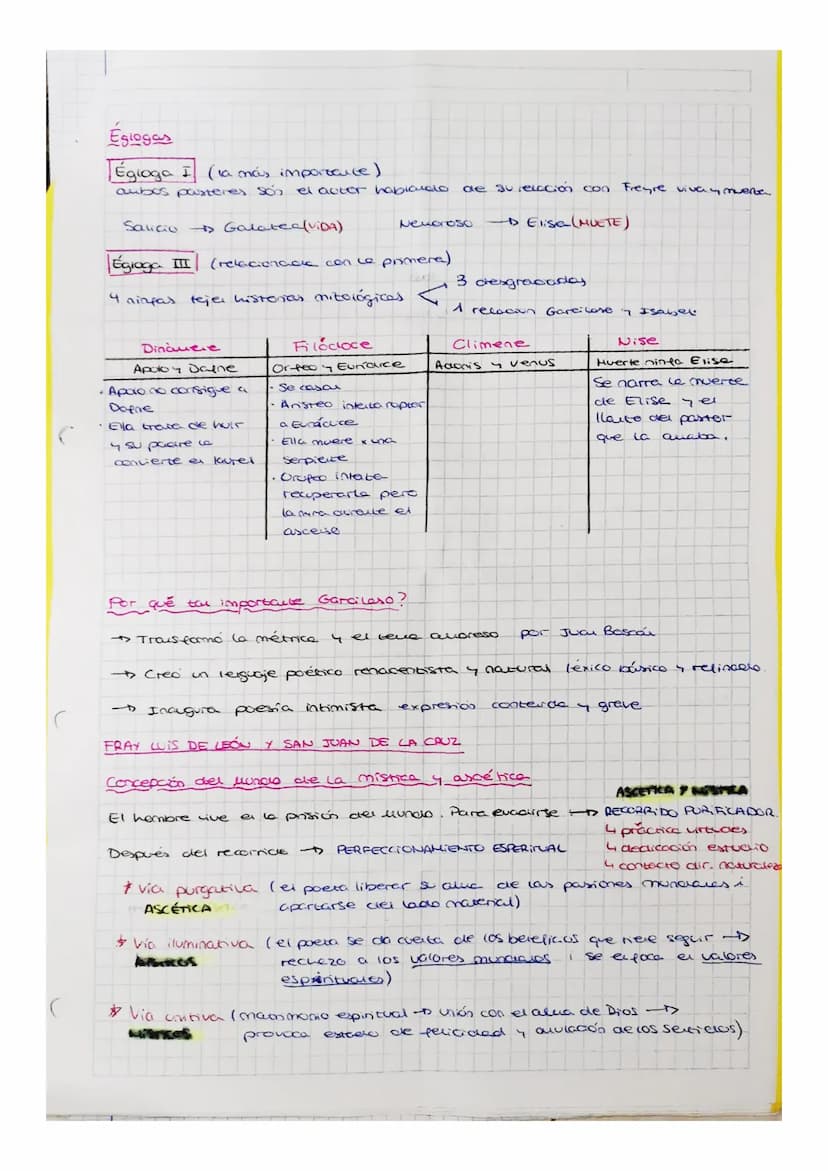 Églogas
Égloga I (la más importante)
ambos pastores son el autor hablando de su relación con Freyre viva y muerta
Salicio → Galatea (VIDA) Nemoroso → Elisa (MUETE)
Égloga III (relacionada con la primera)
3 desgraciadas
4 ninfas tejen historias mitológicas <
1 relación Garcilaso y Isabel
Dinámene Filódoce Climene Nise
Apolo y Dafne Orfeo y Eurídice Adonis y Venus Muerte ninfa Elisa
· Apolo no consigue a
Dafne
· Ella trata de huir
y su padre la
convierte en laurel
· Se casan
· Aristeo intenta raptar
a Eurídice
· Ella muere x una
serpiente
· Orfeo intenta
recuperarla pero
la mira durante el
ascenso
Se narra la muerte
de Elise y el
llanto del pastor
que la amaba.
Por qué tan importante Garcilaso?
→ Transformó la métrica y el tema amoroso por Juan Boscán
→ Creó un lenguaje poético renacentista y natural léxico básico y refinado
→ Inaugura poesía intimista expresión contenida y grave
FRAY LUIS DE LEÓN Y SAN JUAN DE LA CRUZ
Concepción del mundo de la mística y ascética
ASCÉTICA Y MÍSTICA
El hombre vive en la prisión del mundo. Para evadirse → RECORRIDO PURIFICADOR
↳ práctica virtudes
Después del recorrido → PERFECCIONAMIENTO ESPERITUAL ↳ dedicación estudio
↳ contacto dir. naturaleza
* Vía purgativa (el poeta liberar su alma de las pasiones mundanales i
ASCÉTICA apartarse del lado material)
* Vía iluminativa (el poeta se da cuenta de los beneficios que tiene seguir →
rechazo a los valores mundanos i se enfoca en valores
espirituales)
* Vía unitiva (matrimonio espiritual → unión con el alma de Dios →
MÍSTICOS provoca estado de felicidad y anulación de los sentidos)